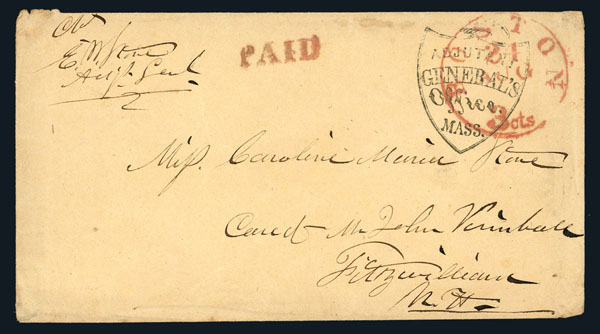 E. W. Stone
Adjt. Genl.
PAID
BOSTON
21
AUG
3 cts
ADJUTANT
GENERAL'S
OFFICE
MASS.
Miss. Caroline Maria Stone
Care of Mr John Kimball
Fitzwilliam
N. H.